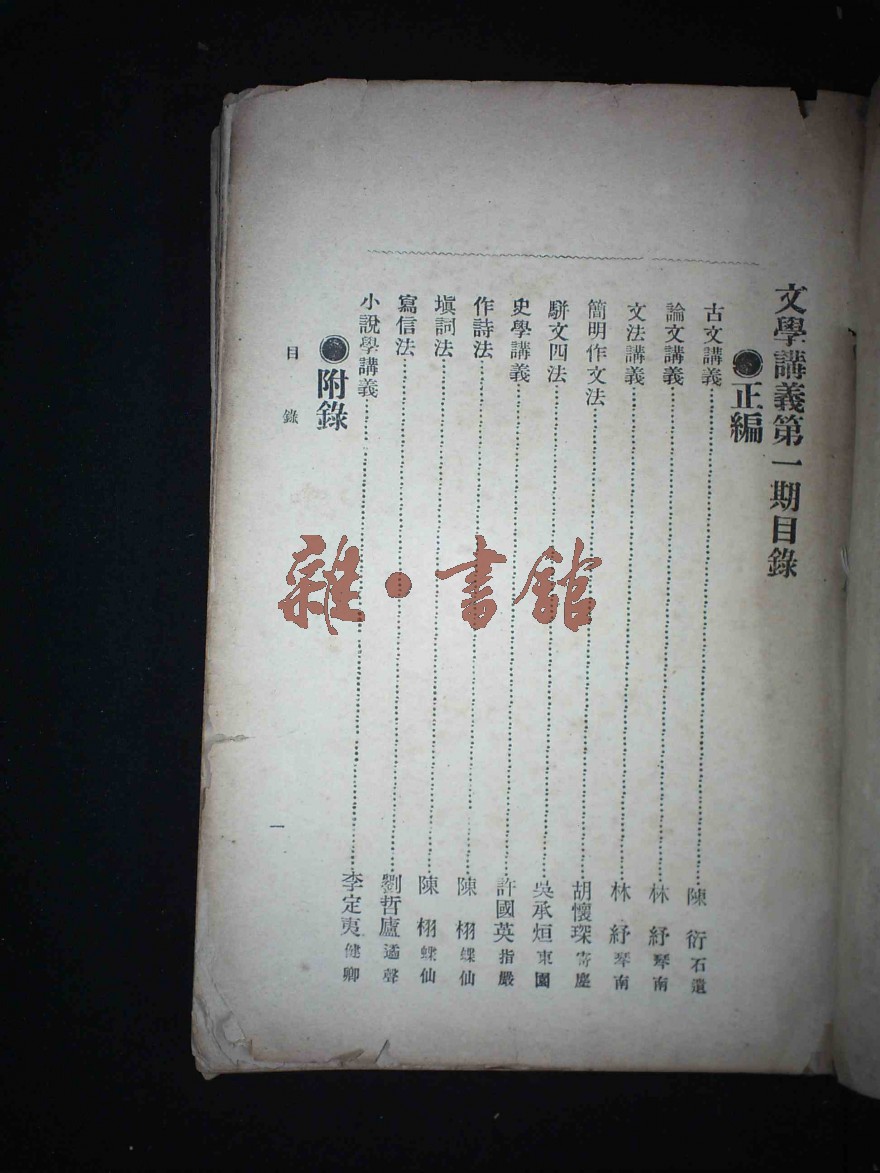 文學講義第一期目錄
正編
古文講義⋯⋯陳衍 石遺
論文講義⋯⋯林紓 琴南
文法講義⋯⋯林紓 琴南
簡明作文法⋯⋯胡懷琛 寄塵
駢文四法⋯⋯吳承烜 東園
史學講義⋯⋯許國英 指嚴
作詩法⋯⋯陳栩 蝶仙
塡詞法⋯⋯陳栩 蝶仙
寫信法⋯⋯劉哲廬 遹聲
小說學講義⋯⋯李定夷 健卿
附錄
目錄
一
雜·書館